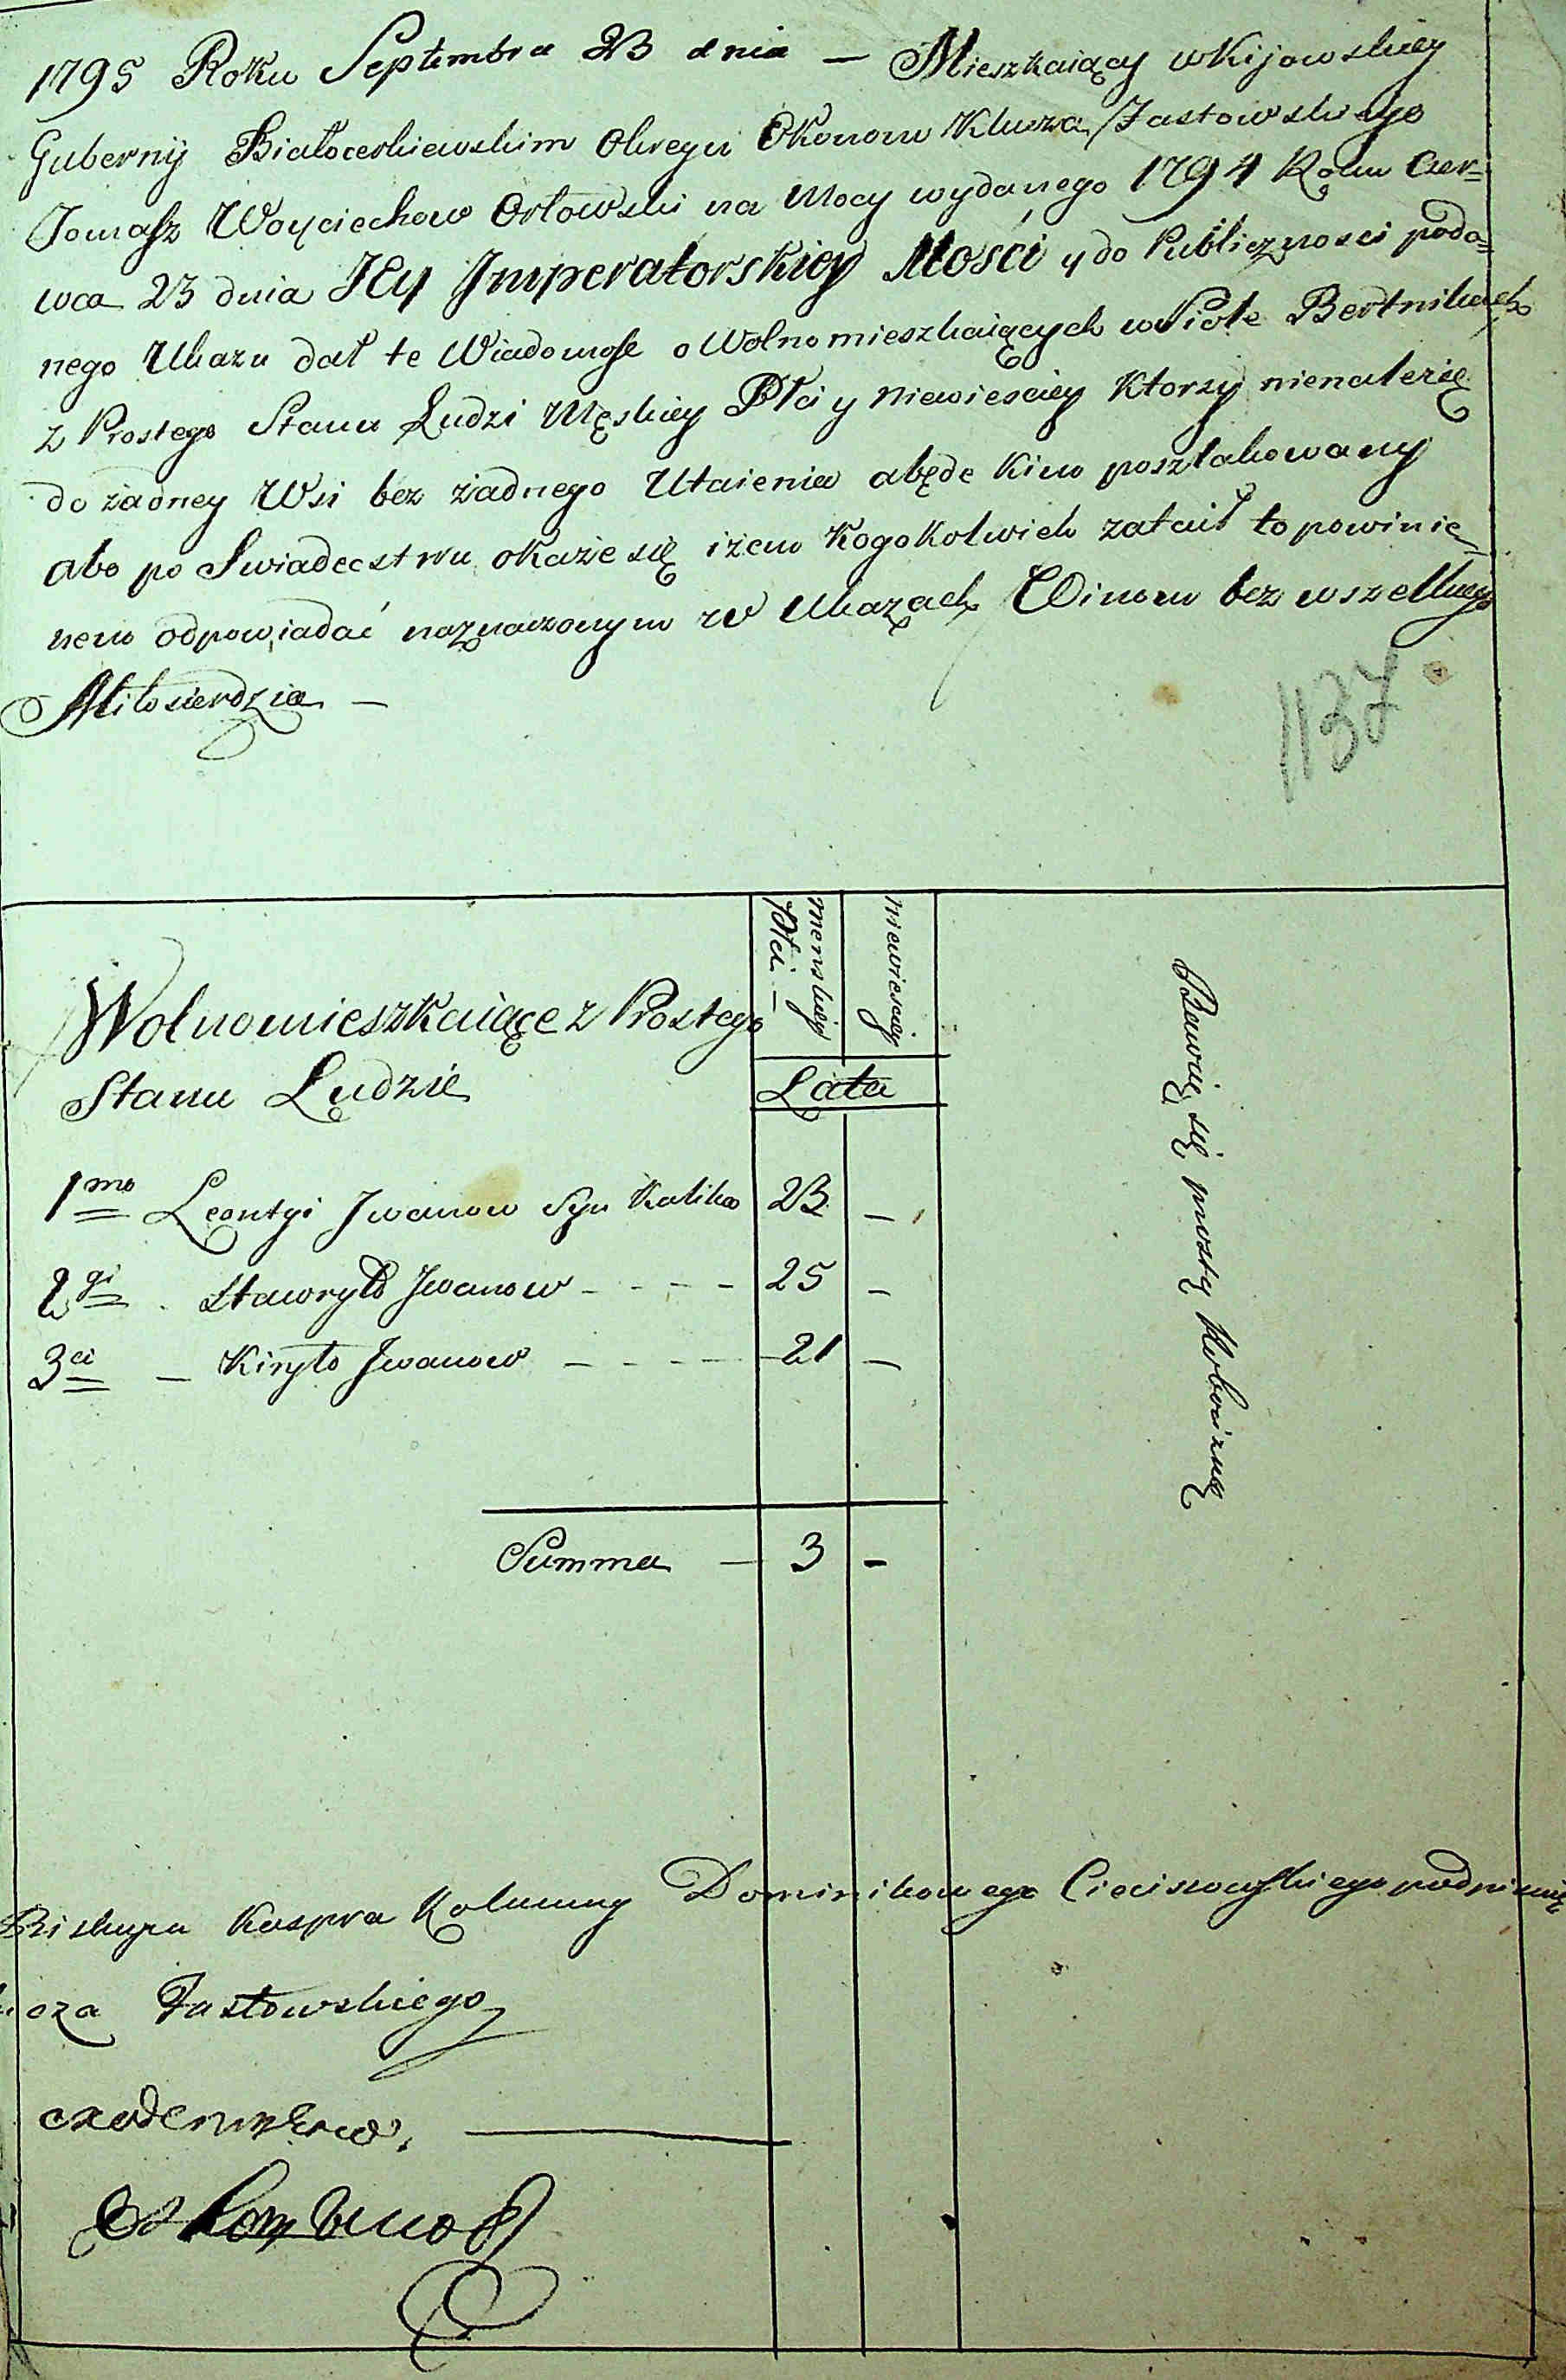 1795 Roku Septembra 23 dnia — Mieszkaiący w Kijowskiey
Gubernij Białocerkiewskim Okręgu Ekonom Klucza Fastowskiego
Tomasz Woyciechow Orłowski na Mocy wydanego 1794 Roku Czer=
wca 23 dnia JEy Imperatorskiey Mości y do Publicznosci poda=
nego Ukazu dał te Wiadomość o Wolno mieszkaiących w Siole Bertnikach
z Prostego Stanu Ludzi Męskiey Płci y Niewiesciey Ktorzy nienależię
do żadney Wsi bez żadnego Utaienia a będę Kim poszlakowany
abo po Swiadecstwu okaże się iżem Kogokolwiek zataił to powinie_
nem odpowiadać naznaczonym w Ukazach Winom bez wszelkiego
Miłosierdzia —
1137
Wolnomieszkaiące z Prostego
Stanu Ludzie
menskiey
Płci —
niewiesciey
Lata
Bawią się prostą Robocizną
1mo Leontyi Iwanow Syn Kalika 23 —
2gi . Hawryło Iwanow - - - - 25 —
3ci — Kiryło Iwanow - - - - 21 —
Summa — 3 -
Biskupa Kaspra Kolumny Dominikowego Cieciszowskiego podpisuię
cza Fastowskiego